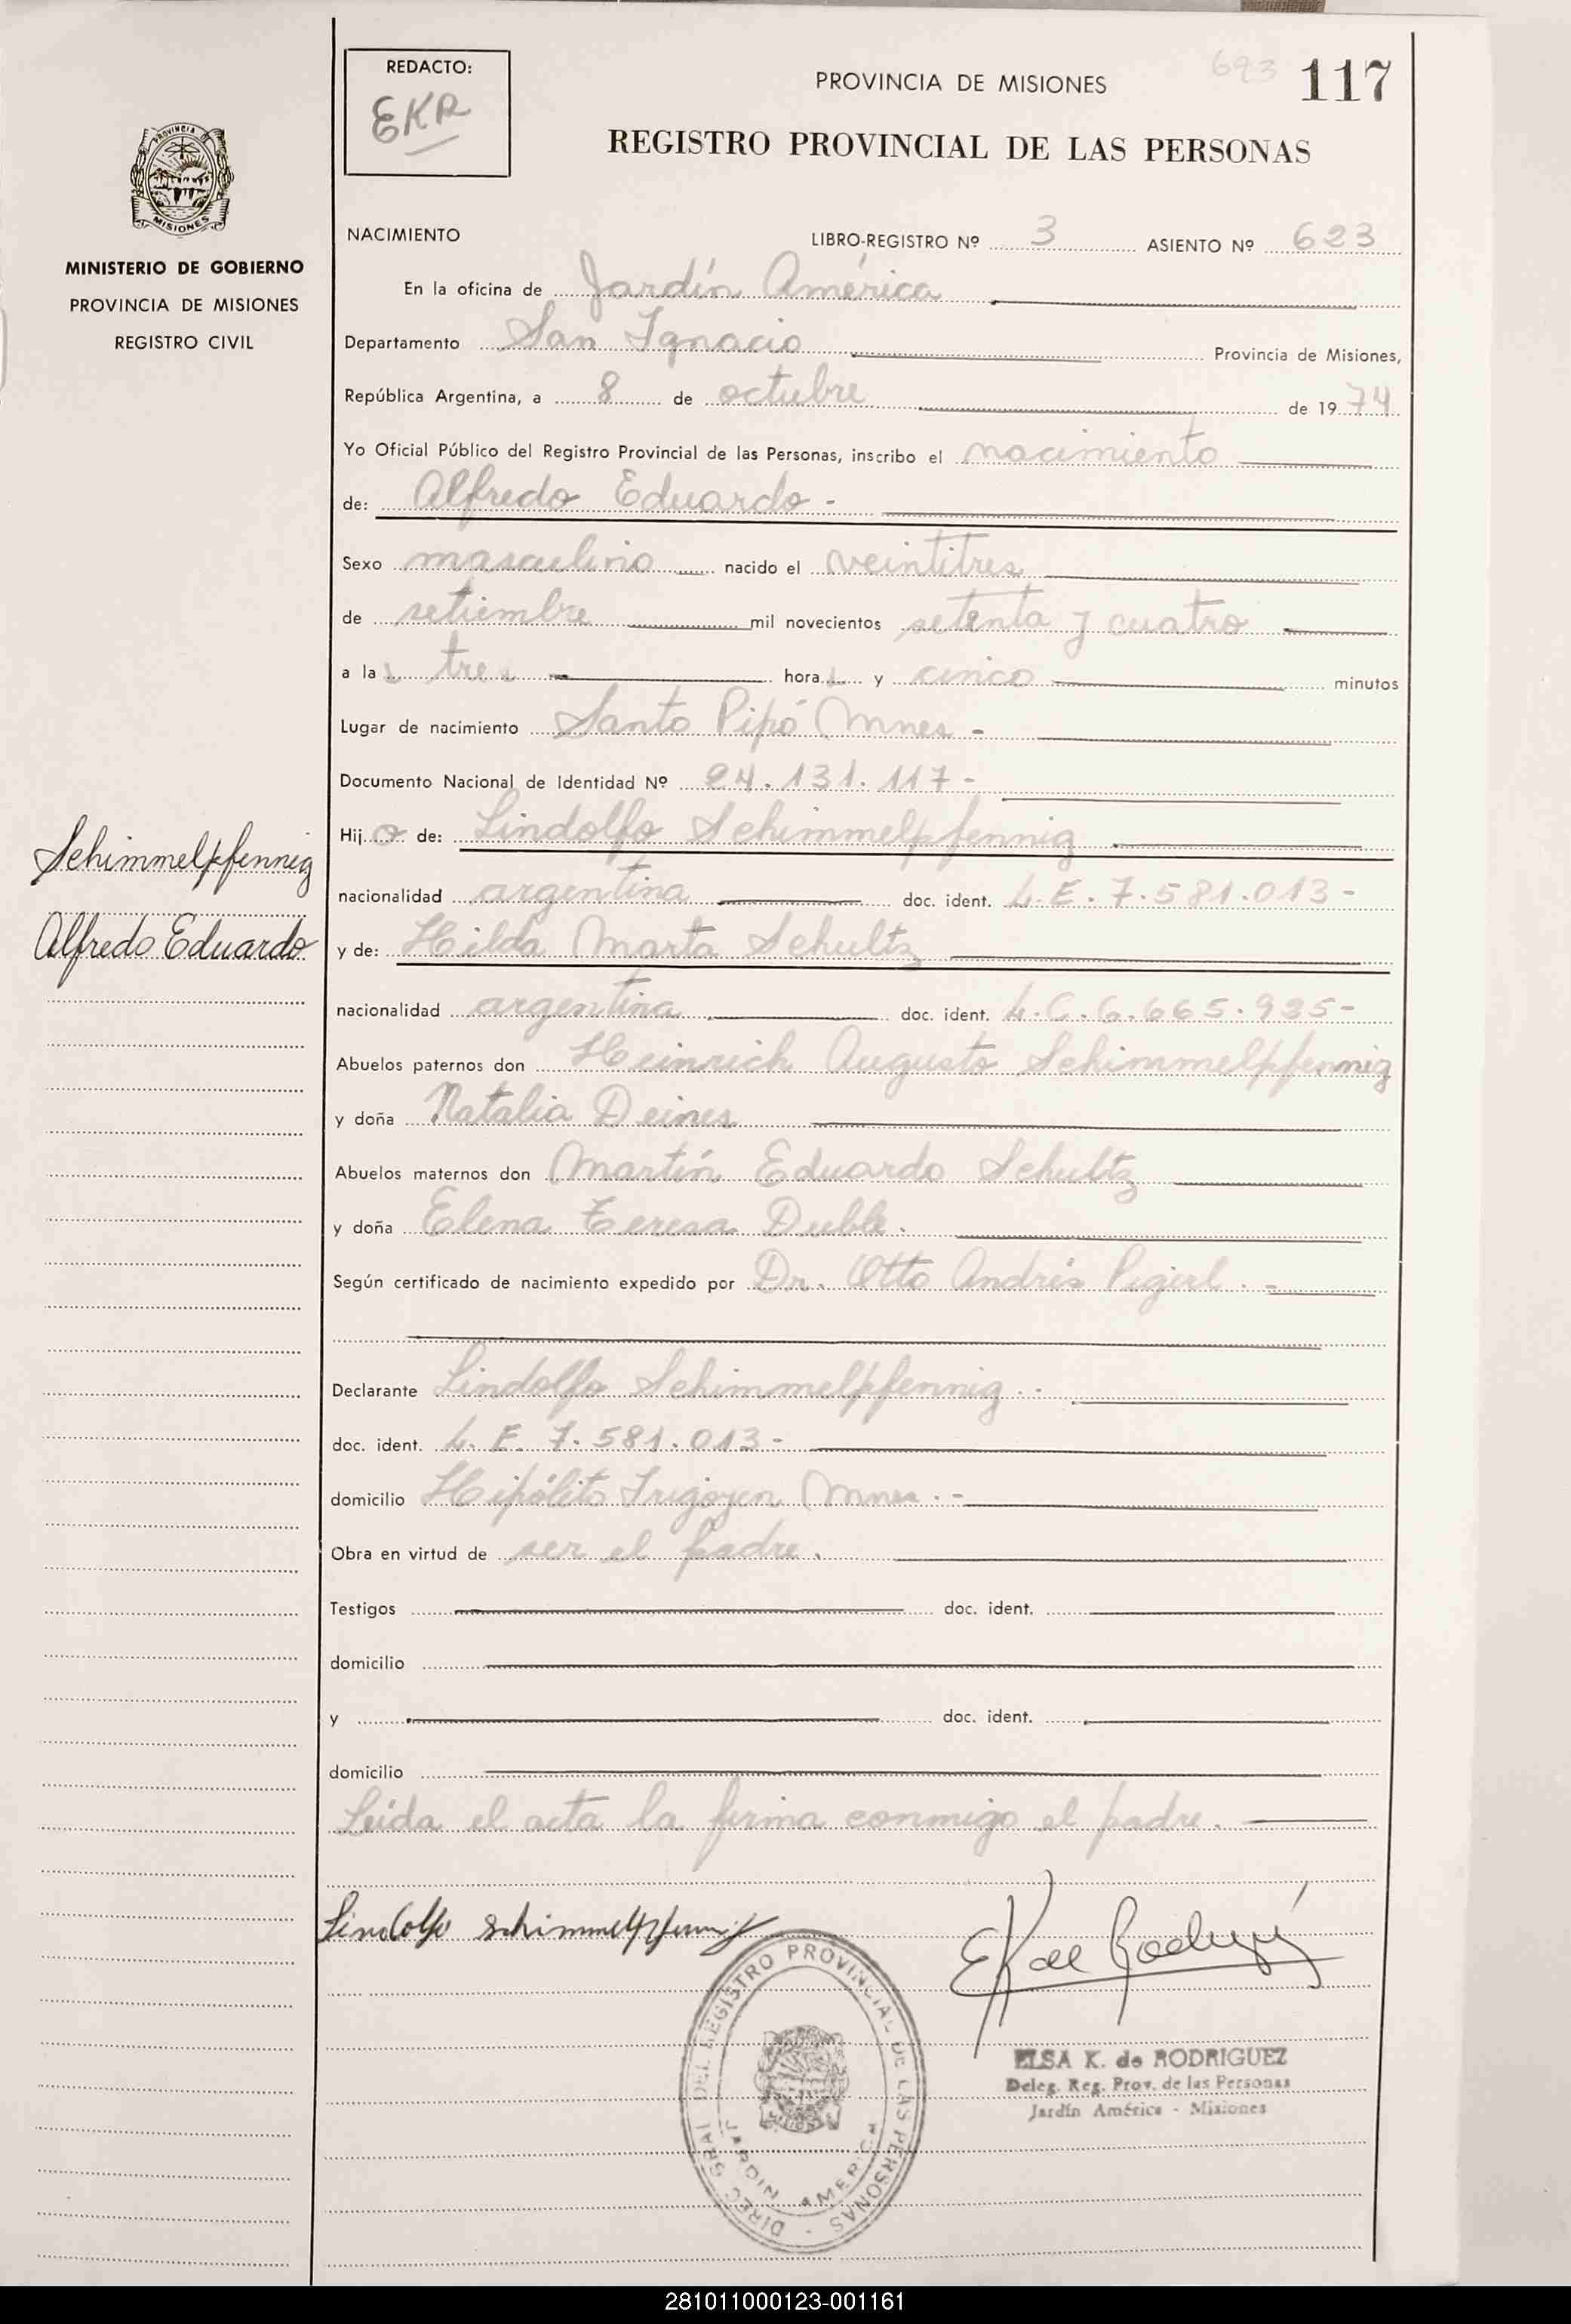 REDACTO:
EKR
PROVINCIA DE MISIONES
693 117
REGISTRO PROVINCIAL DE LAS PERSONAS
PROVINCIA
MISIONES
MINISTERIO DE GOBIERNO
PROVINCIA DE MISIONES
REGISTRO CIVIL
NACIMIENTO LIBRO-REGISTRO Nº 3 ASIENTO Nº 623
En la oficina de Jardín América
Departamento San Ignacio Provincia de Misiones,
República Argentina, a 8 de octubre de 1974
Yo Oficial Público del Registro Provincial de las Personas, inscribo el nacimiento
de: Alfredo Eduardo -
Sexo masculino nacido el veintitres
de setiembre mil novecientos setenta y cuatro
a las tres horas y cinco minutos
Lugar de nacimiento Santo Pipó Mnes -
Documento Nacional de Identidad Nº 24.131.117-
Hijo de: Lindolfo Schimmelpfennig
nacionalidad argentina doc. ident. L.E. 7.581.013-
y de: Hilda Marta Schultz
nacionalidad argentina doc. ident. L.C. 6.665.935-
Abuelos paternos don Heinrich Augusto Schimmelpfennig
y doña Natalia Deines
Abuelos maternos don Martín Eduardo Schultz
y doña Elena Teresa Duble.
Según certificado de nacimiento expedido por Dr. Otto Andrés
Declarante Lindolfo Schimmelpfennig.
doc. ident. L.E. 7.581.013-
domicilio Hipólito Irigoyen Mnes.-
Obra en virtud de ser el padre.
Testigos doc. ident.
domicilio
y doc. ident.
domicilio
Leída el acta la firma conmigo el padre.
Schimmelpfennig
Alfredo Eduardo
Lindolfo Schimmelpfennig
EK de Rodriguez
DIREC. GRAL. DEL REGISTRO PROVINCIAL DE LAS PERSONAS -
JARDIN AMERICA
ELSA K. de RODRIGUEZ
Deleg. Reg. Prov. de las Personas
Jardín América - Misiones
281011000123-001161